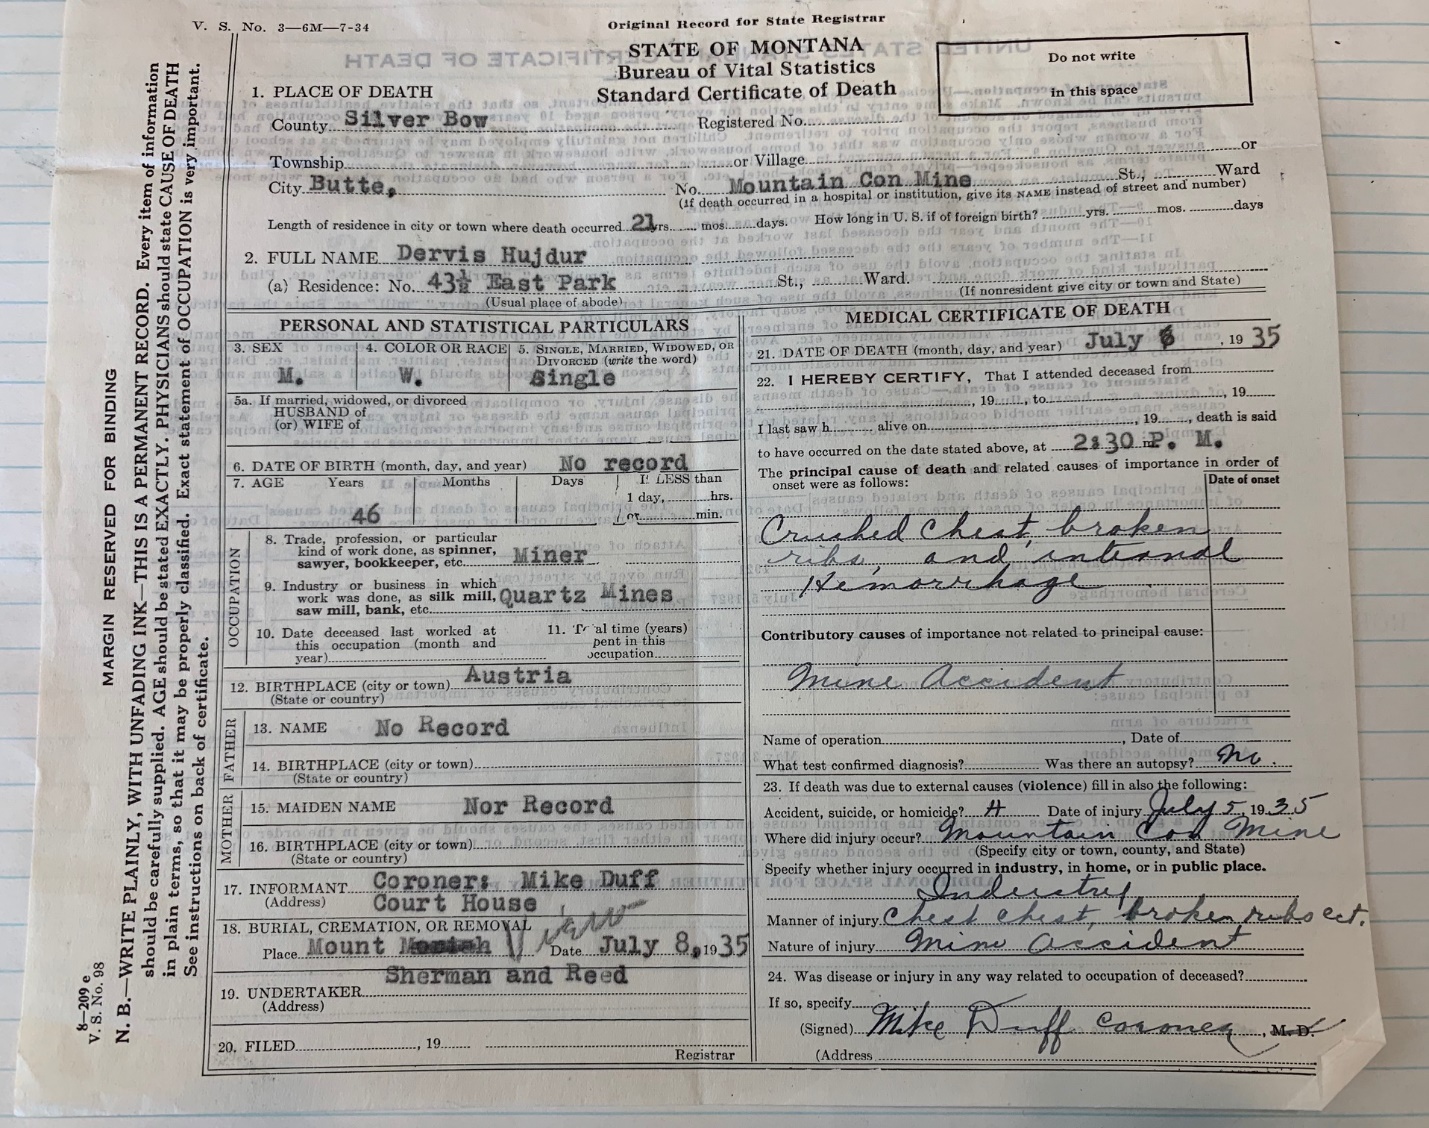 V. S. No. 3—6M—7-34
Original Record for State Registrar
STATE OF MONTANA
Bureau of Vital Statistics
Standard Certificate of Death
Do not write
in this space
1. PLACE OF DEATH
County Silver Bow Registered No.
Township or Village or
City Butte, No. Mountain Con Mine St., Ward
(If death occurred in a hospital or institution, give its NAME instead of street and number)
Length of residence in city or town where death occurred 21 yrs. mos. days. How long in U. S. if of foreign birth? yrs. mos. days
2. FULL NAME Dervis Hujdur
(a) Residence: No. 43½ East Park St., Ward.
(Usual place of abode) (If nonresident give city or town and State)
PERSONAL AND STATISTICAL PARTICULARS
3. SEX M.
4. COLOR OR RACE W.
5. SINGLE, MARRIED, WIDOWED, OR
DIVORCED (write the word)
Single
5a. If married, widowed, or divorced
HUSBAND of
(or) WIFE of
6. DATE OF BIRTH (month, day, and year) No record
7. AGE Years Months Days If LESS than
1 day, hrs.
46 or min.
OCCUPATION
8. Trade, profession, or particular
kind of work done, as spinner,
sawyer, bookkeeper, etc. Miner
9. Industry or business in which
work was done, as silk mill,
saw mill, bank, etc. Quartz Mines
10. Date deceased last worked at
this occupation (month and
year)
11. T al time (years)
pent in this
occupation
12. BIRTHPLACE (city or town) Austria
(State or country)
FATHER
13. NAME No Record
14. BIRTHPLACE (city or town)
(State or country)
MOTHER
15. MAIDEN NAME Nor Record
16. BIRTHPLACE (city or town)
(State or country)
17. INFORMANT Coroner: Mike Duff
(Address) Court House
18. BURIAL, CREMATION, OR REMOVAL
Place Mount Moriah Date July 8, 1935
19. UNDERTAKER Sherman and Reed
(Address)
20. FILED , 19
Registrar
MEDICAL CERTIFICATE OF DEATH
21. DATE OF DEATH (month, day, and year) July , 19 35
22. I HEREBY CERTIFY, That I attended deceased from
, 19 , to , 19
I last saw h alive on , 19 , death is said
to have occurred on the date stated above, at 2:30 m P. M.
The principal cause of death and related causes of importance in order of
onset were as follows:
Date of onset
Crushed Chest, broken
ribs, and internal
Hemorrhage
Contributory causes of importance not related to principal cause:
Mine Accident
Name of operation , Date of
What test confirmed diagnosis? Was there an autopsy? No.
23. If death was due to external causes (violence) fill in also the following:
Accident, suicide, or homicide? Date of injury July 5, 1935
Where did injury occur? Mountain Con Mine
(Specify city or town, county, and State)
Specify whether injury occurred in industry, in home, or in public place.
Industry
Manner of injury Chest, broken ribs ect.
Nature of injury Mine Accident
24. Was disease or injury in any way related to occupation of deceased?
If so, specify
(Signed) Mike Duff Coroner, M. D.
(Address
MARGIN RESERVED FOR BINDING
N. B.—WRITE PLAINLY, WITH UNFADING INK—THIS IS A PERMANENT RECORD. Every item of information
should be carefully supplied. AGE should be stated EXACTLY. PHYSICIANS should state CAUSE OF DEATH
in plain terms, so that it may be properly classified. Exact statement of OCCUPATION is very important.
See instructions on back of certificate.
8—209 e
V. S. No. 98